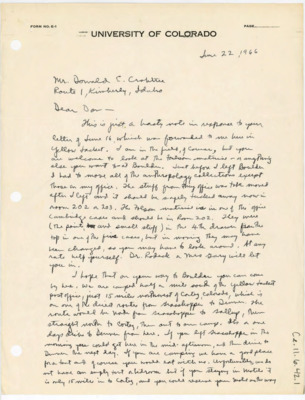 FORM NO. 81 PAGE
UNIVERSITY OF COLORADO
June 22, 1966
Mr. Donald E. Crabtree
Route 1, Kimberly, Idaho
Dear Don —
This is just a hasty note in response to your
letter of June 16 which was forwarded to me here in
Yellow Jacket. I am in the field, of course, but you
are welcome to look at the Folsom material - or anything
else you want to at Boulder. Just before I left Boulder
I had to move all of the anthropology collections except
those in my office. The stuff from my office was to be moved
after I left and it should be safely tucked away now in
room 202 or 203. The Folsom material is in one of the
Cambridge cases and should be in Room 202. They were
(the points and small stuff) in the 4th drawer from the
top in one of the cases, but in moving they may have
been changed, so you may have to look around. At any
rate help yourself. Dr. or Mrs. will let
you in.
I hope that on your way to Boulder you can come
by here. We are camped half a mile south of the Yellow Jacket
post office, just 15 miles northwest of Cortez, Colorado, which is
on one of the direct routes from to Denver. The
route would be from to, then
straight south to Cortez, then out to our camp. It's a one
day's drive to Denver from here. If you left in the
morning you could get here in the mid-afternoon, and then drive to
Denver the next day. If you are camping we have a good place
for but of course you would eat with us. Unfortunately we do
not have an empty bedroom but if you stay in Motels it
is only 15 miles in to Cortez, and you could reserve your on the way
Ca.11.6.42.1